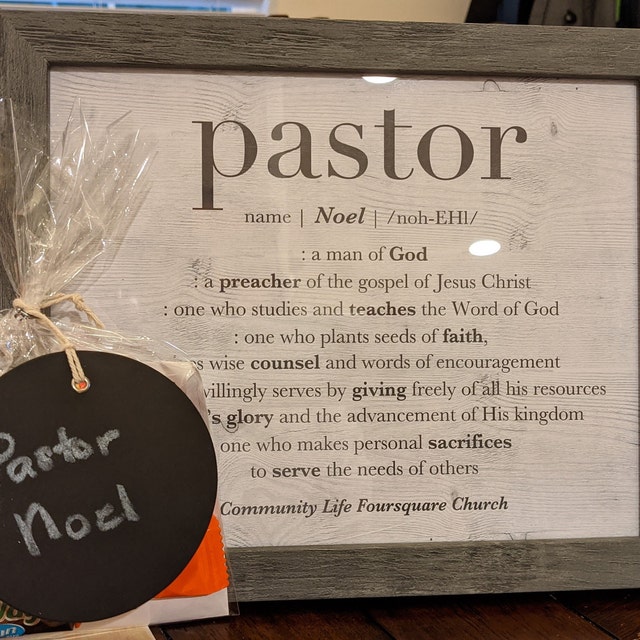 pastor
name | Noel | /noh-EHl/
: a man of God
: a preacher of the gospel of Jesus Christ
: one who studies and teaches the Word of God
: one who plants seeds of faith,
wise counsel and words of encouragement
willingly serves by giving freely of all his resources
's glory and the advancement of His kingdom
one who makes personal sacrifices
to serve the needs of others
Community Life Foursquare Church
Pastor
Noel